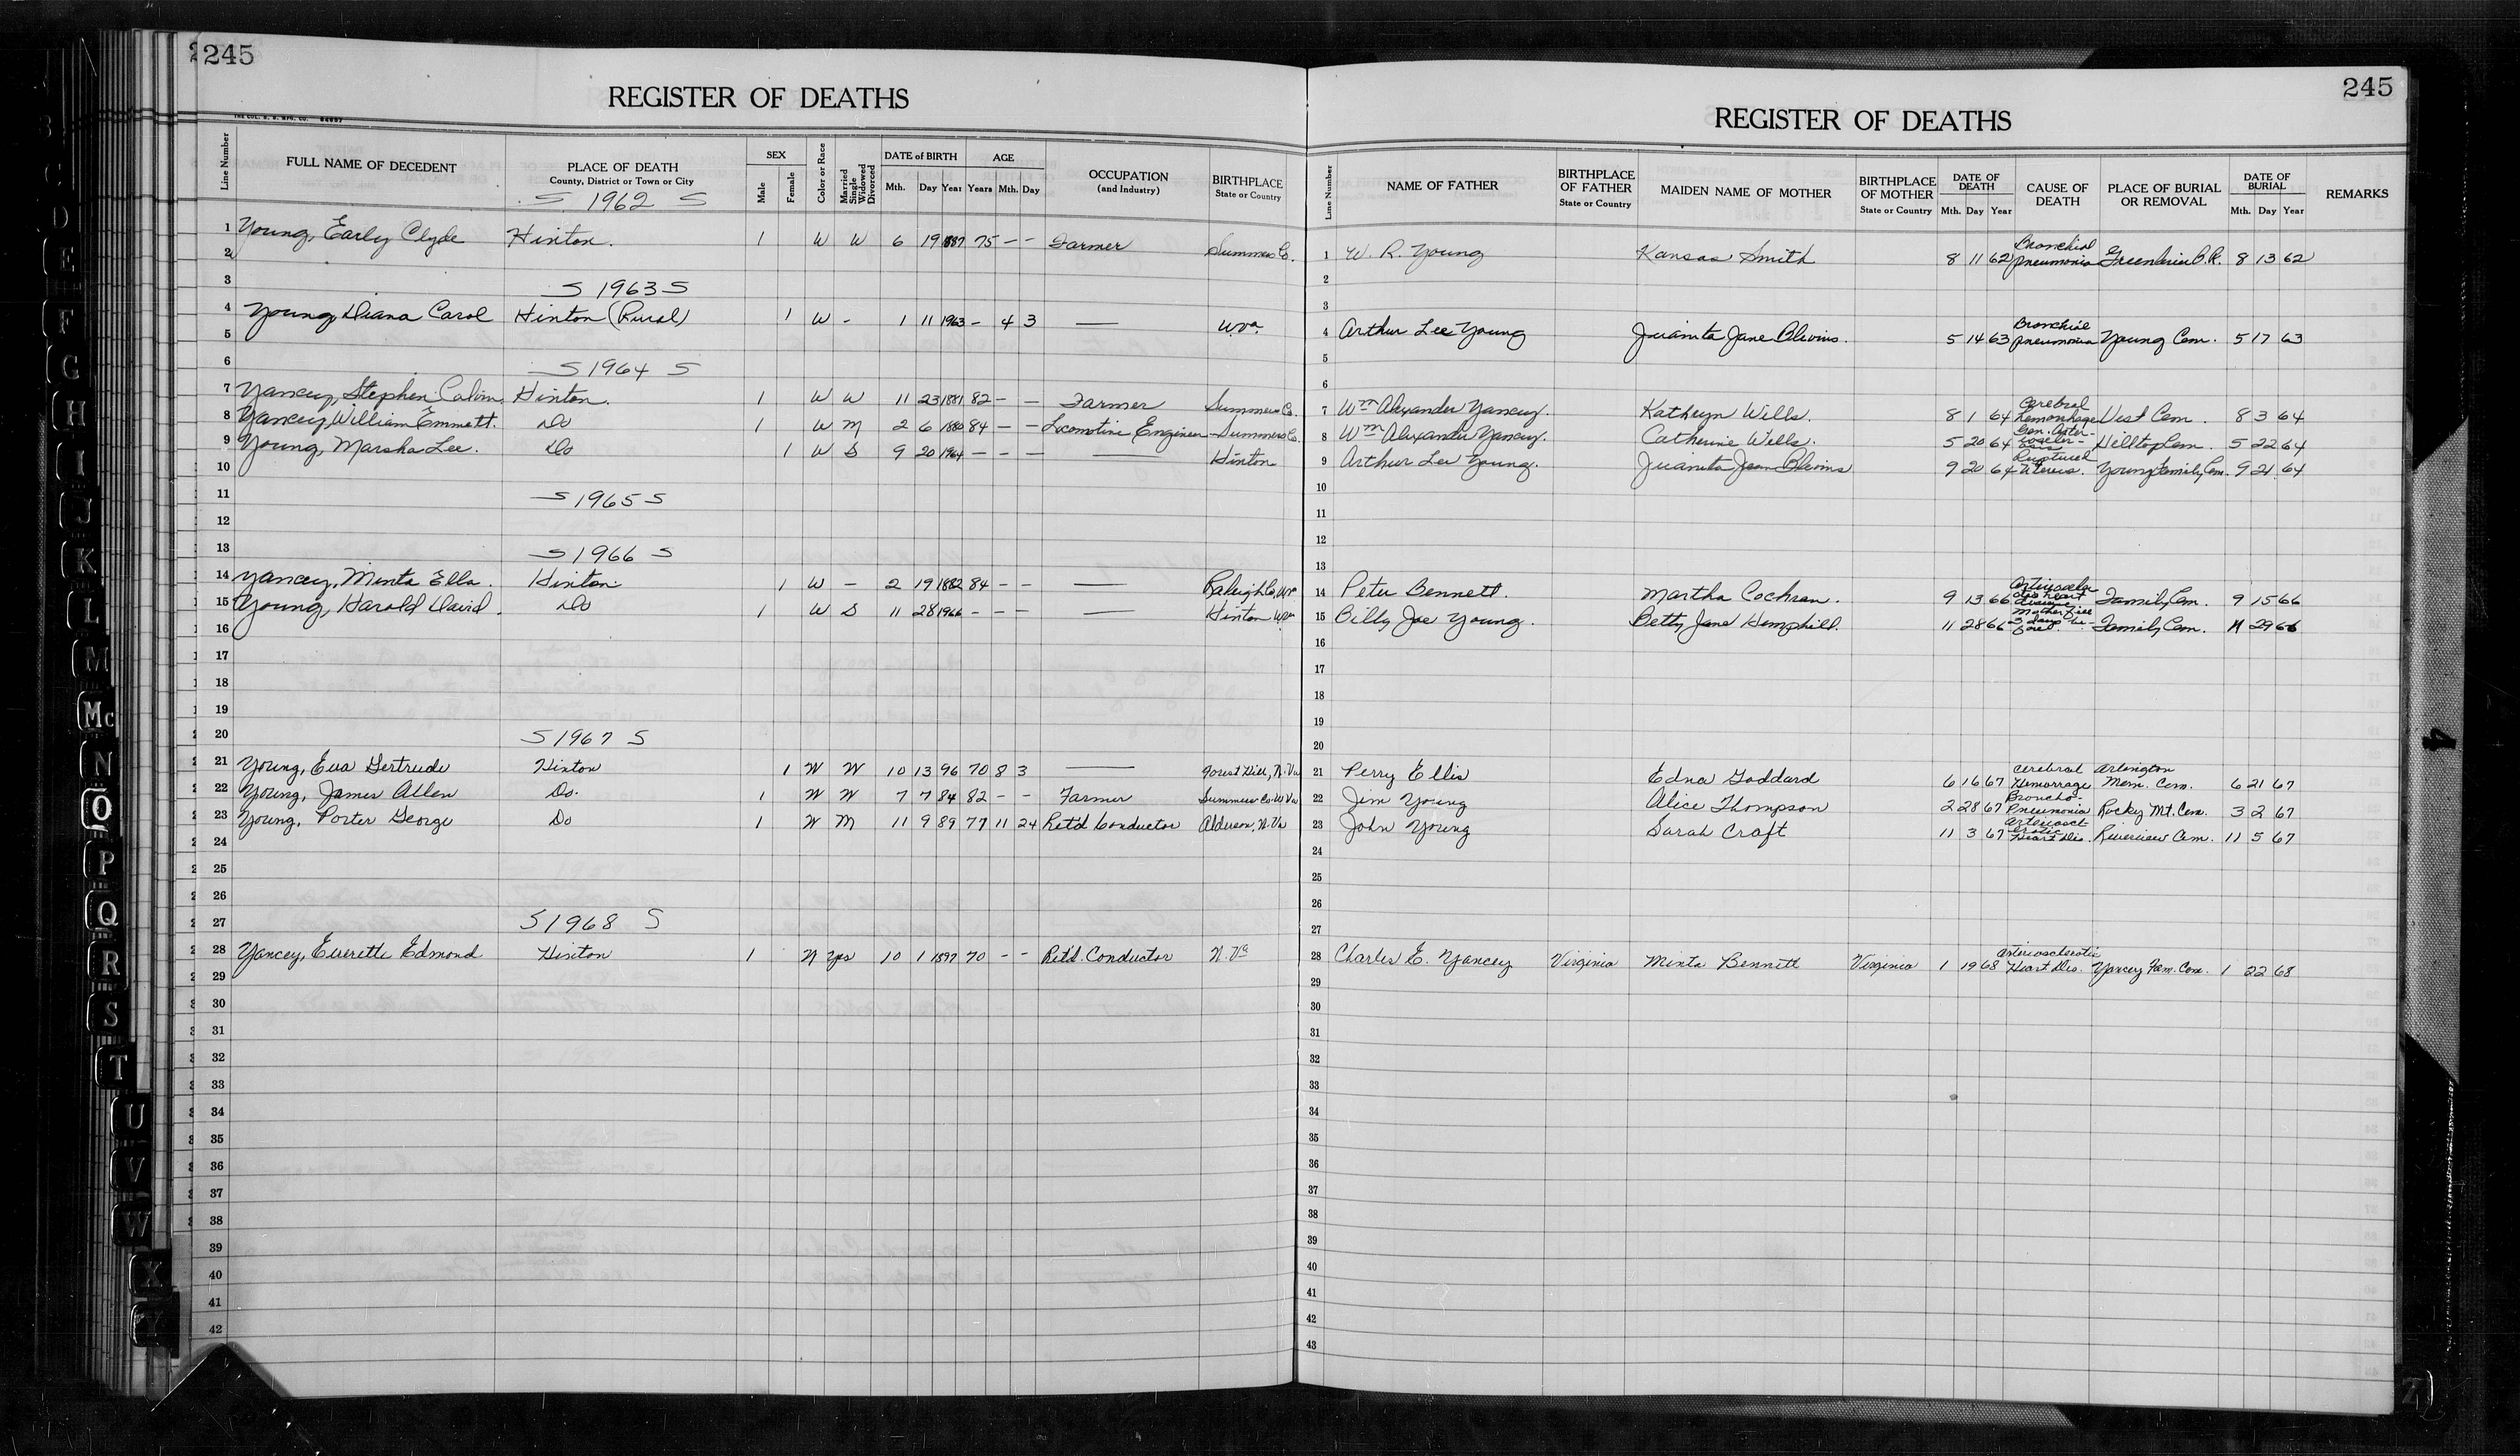 245
REGISTER OF DEATHS
Line Number FULL NAME OF DECEDENT PLACE OF DEATH County, District or Town or City SEX Male Female Color or Race Married Single Widowed Divorced DATE of BIRTH Mth. Day Year AGE Years Mth. Day OCCUPATION (and Industry) BIRTHPLACE State or Country
S 1962 S
1 Young, Early Clyde Hinton. 1 W W 6 19 1887 75 - - Farmer Summers Co.
2
3 S 1963 S
4 Young, Diana Carol Hinton (Rural) 1 W - 1 11 1963 - 4 3 — W Va
5
6 S 1964 S
7 Yancey, Stephen Calvin Hinton. 1 W W 11 23 1881 82 - - Farmer Summers Co.
8 Yancey, William Emmett. Do 1 W M 2 6 1880 84 - - Locomotive Engineer Summers Co.
9 Young, Marsha Lee. Do 1 W S 9 20 1964 - - - — Hinton
10
11 S 1965 S
12
13 S 1966 S
14 Yancey, Minta Ella. Hinton 1 W - 2 19 1882 84 - - — Raleigh Co, W Va
15 Young, Harold David. Do 1 W S 11 28 1966 - - - — Hinton W Va
16
17
18
19
20 S 1967 S
21 Young, Eva Gertrude Hinton 1 W W 10 13 96 70 8 3 — Forest Hill, W. Va
22 Young, James Allen Do. 1 W W 7 7 84 82 - - Farmer Summers Co. W Va
23 Young, Porter George Do 1 W M 11 9 89 77 11 24 Ret'd Conductor Alderson, W. Va
24
25
26
27 S 1968 S
28 Yancey, Everette Edmond Hinton 1 W yes 10 1 1897 70 - - Ret'd. Conductor W. Va
29
30
31
32
33
34
35
36
37
38
39
40
41
42
245
REGISTER OF DEATHS
Line Number NAME OF FATHER BIRTHPLACE OF FATHER State or Country MAIDEN NAME OF MOTHER BIRTHPLACE OF MOTHER State or Country DATE OF DEATH Mth. Day Year CAUSE OF DEATH PLACE OF BURIAL OR REMOVAL DATE OF BURIAL Mth. Day Year REMARKS
1 W. R. Young Kansas Smith 8 11 62 Bronchial pneumonia Greenbrier B. R. 8 13 62
2
3
4 Arthur Lee Young Juanita Jane Blevins. 5 14 63 Bronchial pneumonia Young Cem. 5 17 63
5
6
7 Wm Alexander Yancey. Kathryn Wills. 8 1 64 Cerebral Hemorrhage Vest Cem. 8 3 64
8 Wm Alexander Yancey. Catherine Wills. 5 20 64 Gen. Arter- Hilltop Cem. 5 22 64
9 Arthur Lee Young. Juanita Jean Blevins 9 20 64 Ruptured Uterus. Young Family Cem. 9 21 64
10
11
12
13
14 Peter Bennett. Martha Cochran. 9 13 66 heart disease Family Cem. 9 15 66
15 Billy Joe Young. Betty Jane Hemphill. 11 28 66 Mother fell 3 days be- fore. Family Cem. 11 29 66
16
17
18
19
20
21 Perry Ellis Edna Goddard 6 16 67 Cerebral Hemorrage Arlington Mem. Cem. 6 21 67
22 Jim Young Alice Thompson 2 28 67 Broncho- Pneumonia Rocky Mt. Cem. 3 2 67
23 John Young Sarah Craft 11 3 67 Arterioscl- erotic Heart Dis. Riverview Cem. 11 5 67
24
25
26
27
28 Charles E. Yancey Virginia Minta Bennett Virginia 1 19 68 Arteriosclerotic Heart Dis. Yancey Fam. Cem. 1 22 68
29
30
31
32
33
34
35
36
37
38
39
40
41
42
43
D
E
F
G
H
I
J
K
L
M
Mc
N
O
P
Q
R
S
T
U
V
W
X
4